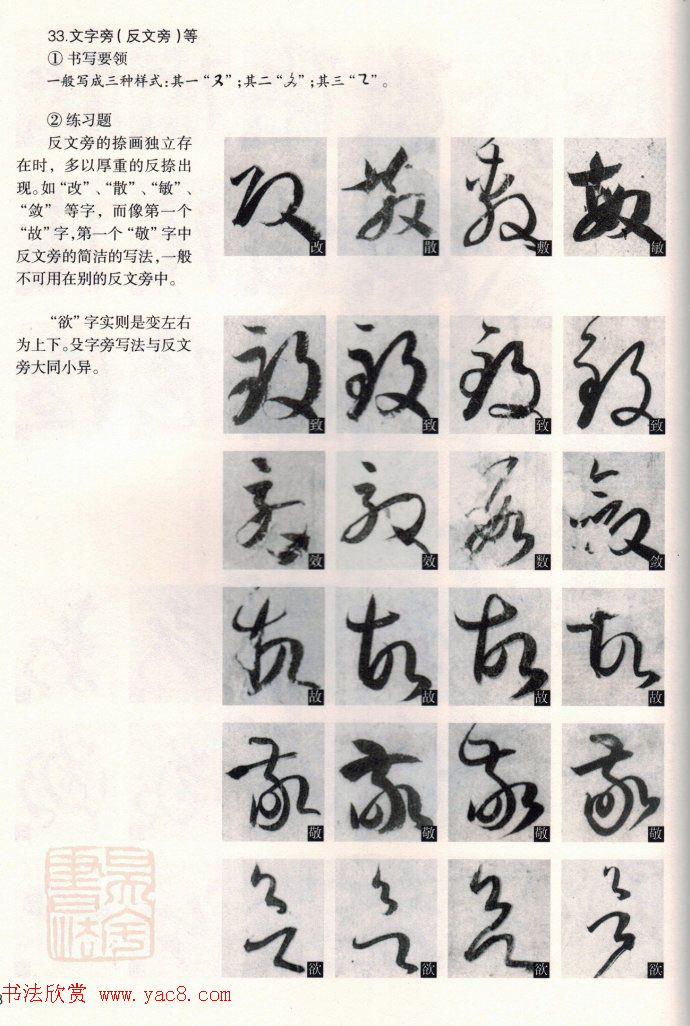 33.文字旁(反文旁)等
① 书写要领
一般写成三种样式:其一“又”;其二“”;其三“”。
② 练习题
反文旁的捺画独立存
在时，多以厚重的反捺出
现。如“改”、“散”、“敏”、
“敛” 等字，而像第一个
“故”字,第一个“敬”字中
反文旁的简洁的写法,一般
不可用在别的反文旁中。
“欲”字实则是变左右
为上下。殳字旁写法与反文
旁大同小异。
改 散 敷 敏
致 致 致 致
效 效 数 敛
故 故 故 故
敬 敬 敬 敬
欲 欲 欲 欲
书法欣赏 www.yac8.com